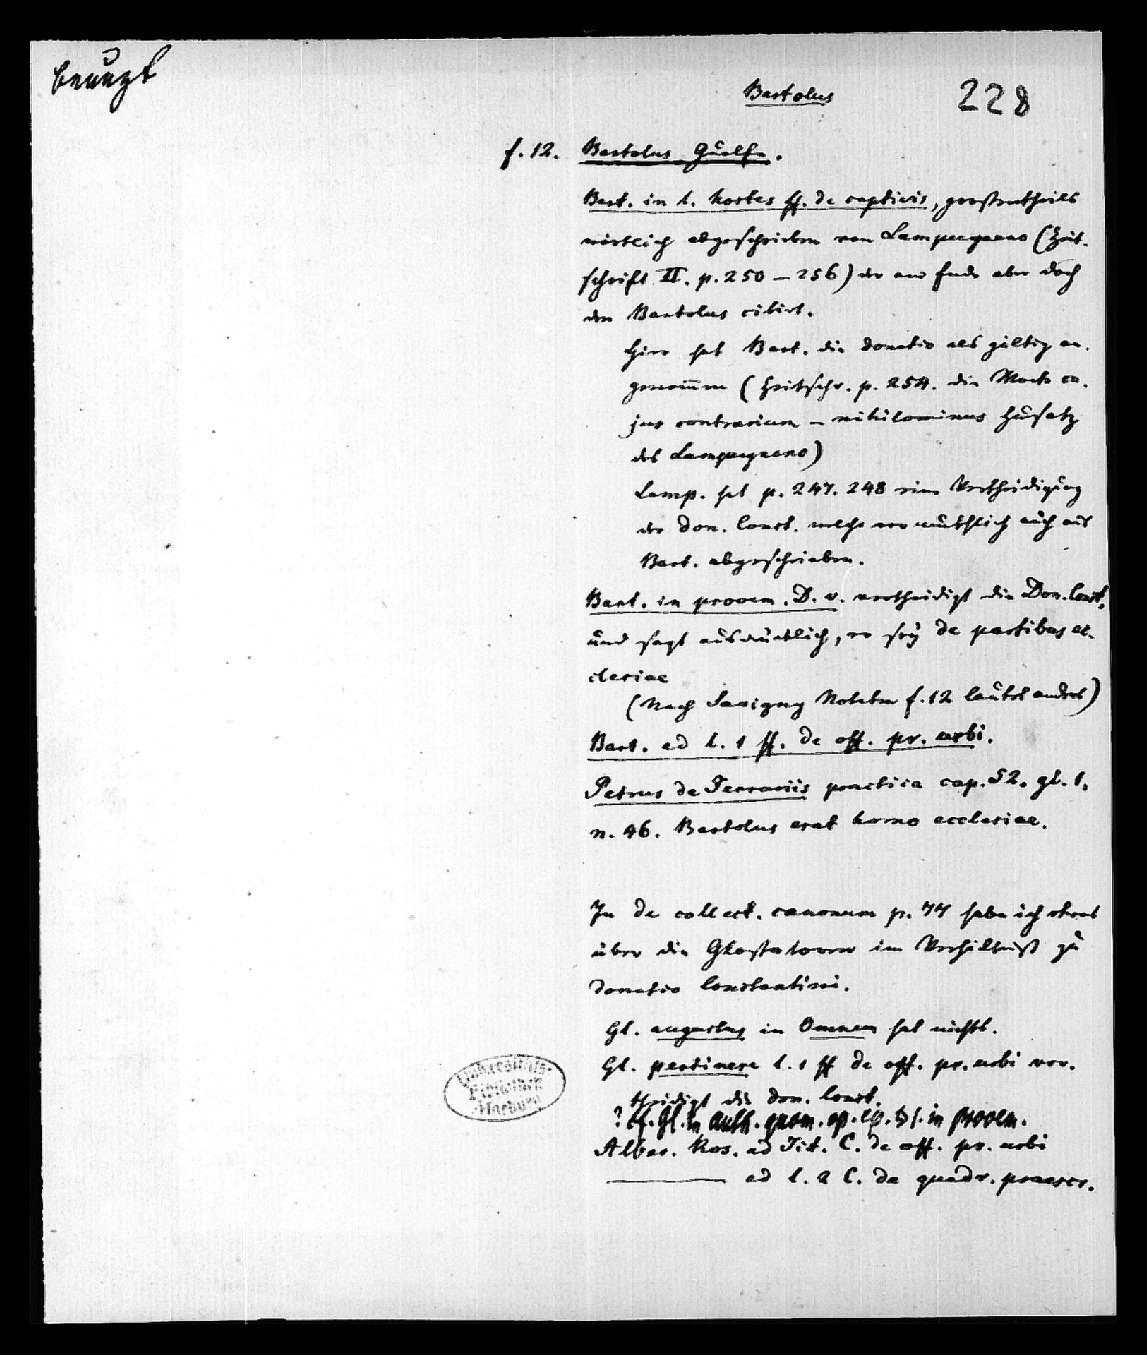 benuzt
Bartolus
228
f. 12. Bartolus Guelfe.
Bart. in l. hostes ff. de captivis, großentheils
wörtlich abgeschrieben von Lampugnano (Zeit-
schrift II. p. 250 – 256) der am Ende aber doch
den Bartolus citirt.
Hier hat Bart. die donatio als gültig an-
genom̄en (Zeitschr. p. 254. die Worte cu-
jus contrarium – nihilominus Zusatz
des Lampugnano)
Lamp. hat p. 247. 248 eine Vertheidigung
der Don. Const. welche vermuthlich auch aus
Bart. abgeschrieben.
Bart. in prooem. D. v. vertheidigt die Don. Const.
und sagt ausdrücklich, er sey de partibus ec-
clesiae
(Nach Savigny Noten f. 12 lautet anders)
Bart. ad l. 1 ff. de off. pr. urbi.
Petrus de Ferrariis practica cap. 52. gl. 1.
n. 46. Bartolus erat homo ecclesiae.
In de collect. canonum p. 77 habe ich etwas
über die Glossatoren im Verhältniß zu
donatio Constantini.
Gl. augustus in Omnem hat nichts.
Gl. pertinere l. 1 ff de off. pr. urbi ver-
theidigt die don. Const.
? Cf. Gl. in auth. quom. op. ep. § 1. in prooem.
Alber. Ros. ad Tit. C. de off. pr. urbi
——— ad l. 2 C. de quadr. praescr.
Universitäts-
Bibliothek
Marburg